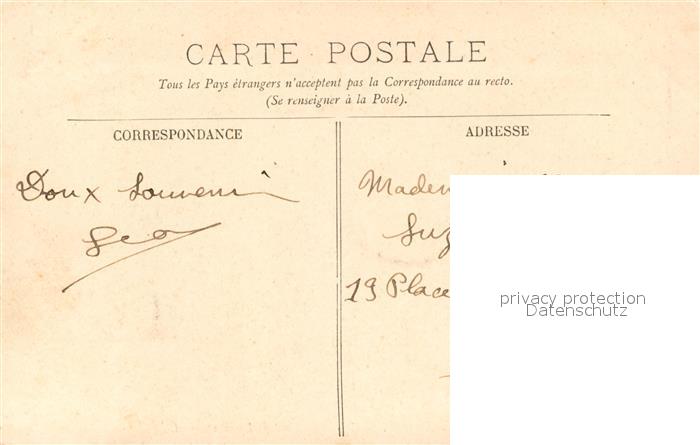 CARTE POSTALE
Tous les Pays étrangers n'acceptent pas la Correspondance au recto.
(Se renseigner à la Poste).
CORRESPONDANCE
ADRESSE
Doux souvenir
Geo
Madem
Suz
19 Place
privacy protection
Datenschutz